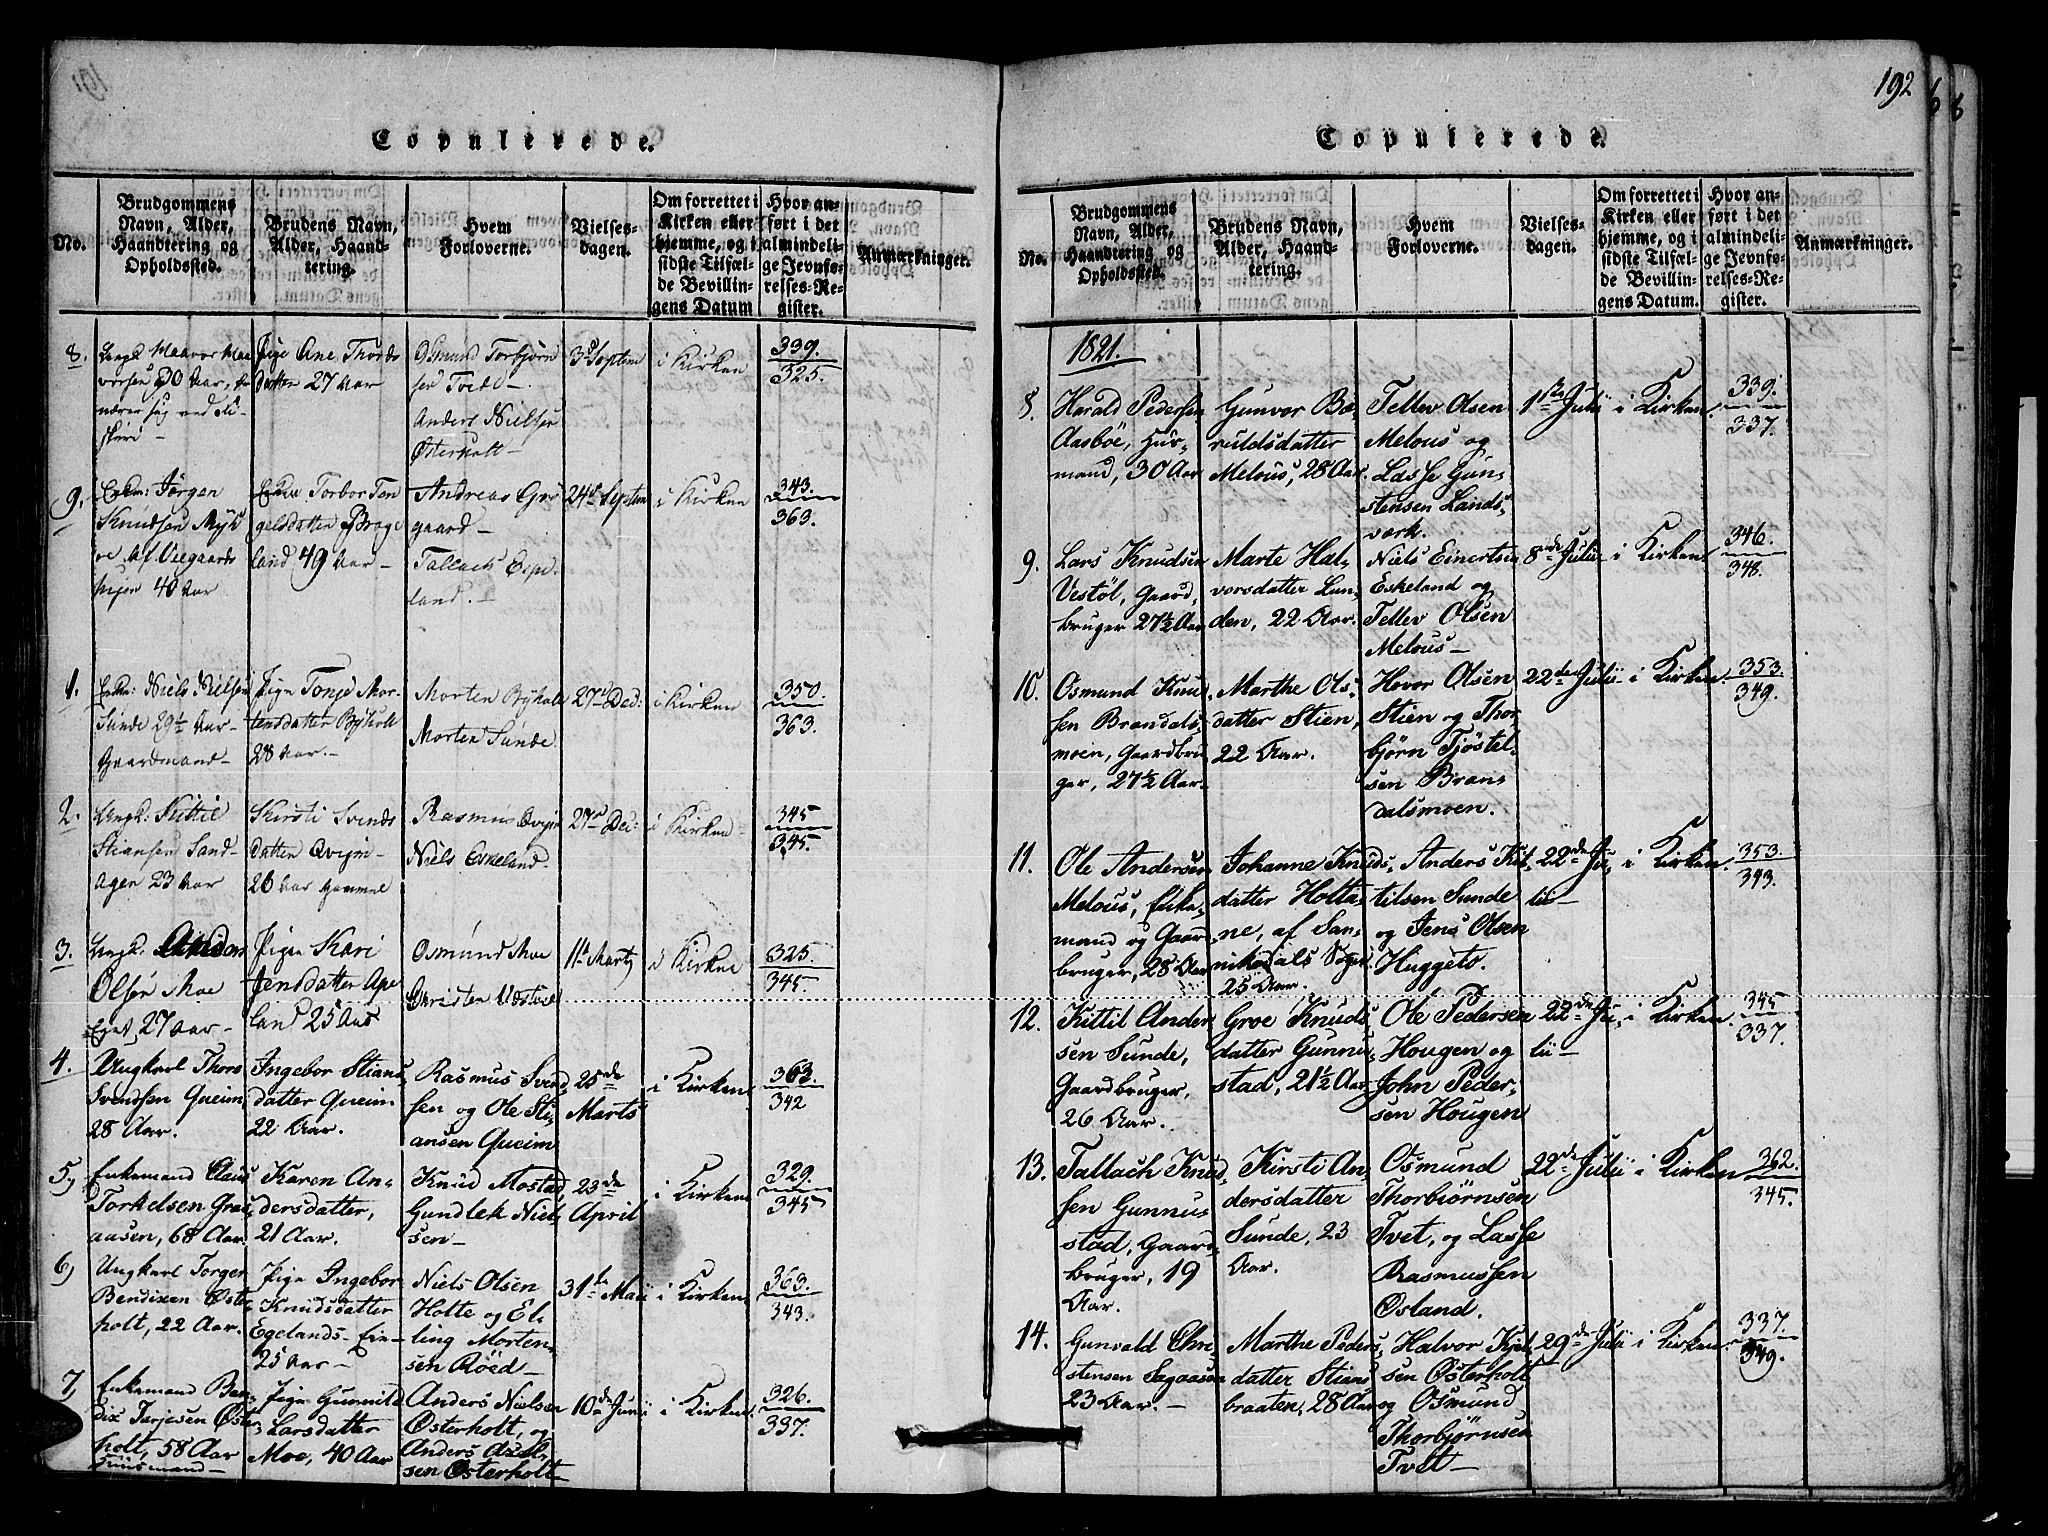 191
Copulerede.
No.
Brudgommens
Navn, Alder,
Haandtering og
Opholdssted.
Brudens Navn,
Alder, Haand-
tering.
Hvem
Forloverne.
Vielses-
dagen.
Om forrettet i
Kirken eller
hjemme, og i
sidste Tilfæl-
de Bevillin-
gens Datum
Hvor an-
ført i det
almindeli-
ge Jevnfø-
relses-Re-
gister.
Anmærkninger.
8.
Ungk. Haavor Haa
vorsen 30 Aar,
nærer sig ved
Pige Ane Thords
datter 27 Aar
Osmund Torbjørn
sen Tvedt
Anders Nielsen
Østerholt
3d Septem
i Kirken
339.
325.
9.
Enkm: Jørgen
Knudsen
40 Aar
Enke Torbor Ten
gelsdatter
land 49 Aar
Andreas
gaard
Tallach Espe
land.
24d Septem
i Kirken
343.
363.
1.
Enkm: Niels Nielsen
Sunde 29½ Aar
Gaardmand
Pige Tonje Mor
tensdatter Bryholt
28 Aar.
Morten Bryholt
Morten Sunde
27d Dec:
i Kirken
350.
363.
2.
Ungk: Kittil
Stiansen Sand-
agen 23 Aar
Kirsti Svends
datter Qvejm
26 Aar gammel
Rasmus Qvejm
Niels Eskeland
27d Dec:
i Kirken
345
345.
3.
Ungk. Anders
Olsen Moe
27 Aar
Pigen Kari
Jensdatter Ape
land 25 Aar
Osmund Moe
Christen Vestøl
11d Marty
i Kirken
325.
345.
4.
Ungkarl Thore
Svendsen Queim,
28 Aar.
Ingebor Stians
datter Queim
22 Aar.
Rasmus Svend
sen og Ole Sti-
ansen Queim
25de
Marts
i Kirken
363
342
5,
Enkemand Claus
Torkelsen Graa
aasen, 68 Aar.
Karen An-
dersdatter,
21 Aar.
Knud Mostad,
Gundlek Niel,
sen
23de
April
i Kirken
329.
345
6,
Ungkarl Torger
Bendixen Øster
holt, 22 Aar.
Pige Ingebor
Knudsdatter
Egelands-Ein-
25 Aar
Niels Olsen
Holte og El-
ling Morten-
sen Røed
31te Maii
i Kirken
363.
343.
7,
Enkemand Ben-
dix Tarjesen Øster
holt, 58 Aar
Huusmand
Pige Gunnild
Larsdatter
Moe, 40 Aar
Anders Nielsen
Østerholt, og
Anders Axel-
sen Østerholt
10de Junii
i Kirken
326.
337.
192
Copulerede.
No.
Brudgommens
Navn, Alder,
Haandtering og
Opholdssted.
Brudens Navn,
Alder, Haand-
tering.
Hvem
Forloverne.
Vielses-
dagen.
Om forrettet i
Kirken eller
hjemme, og i
sidste Tilfæl-
de Bevillin-
gens Datum.
Hvor an-
ført i det
almindeli-
ge Jevnfø-
relses-Re-
gister.
Anmærkninger.
1821.
8.
Harald Pedersen
Aasbøe, Huus-
mand, 30 Aar
Gunvor Bæ-
ruldsdatter
Melous, 28 Aar.
Tellev Olsen
Melous og
Lasse Gun-
stensen Lands-
værk.
1ste Julii
i Kirken.
339.
337.
9.
Lars Knudsen
Vestøl, Gaard,
bruger 27½ Aar
Marte Hal-
vorsdatter Lun-
den, 22 Aar.
Niels Einertsen
Eskeland og
Tellev Olsen
Melous
8nde Julii
i Kirken
346.
348.
10.
Osmund Knu
sen Brandals-
moen, Gaardbru
ger, 27½ Aar.
Marthe Ols-
datter Stien,
22 Aar.
Hovor Olsen
Stien og Thor
bjørn Tjøstel-
sen Bran
dalsmoen.
22de Julii
i Kirken
353.
349.
11.
Ole Andersen
Melous, Enke-
mand og Gaar
bruger, 28 Aar
Johanne Knuds,
datter Holta-
ne, af San-
nikedals Sogn
25 Aar.
Anders Kit,
tilsen Sunde
og Jens Olsen
Huggeto.
22de Ju,
lii
i Kirken
353.
343.
12.
Kittil Ander
sen Sunde,
Gaardbruger,
26 Aar.
Groe Knuds
datter Gunnu-
stad, 21½ Aar
Ole Pedersen
Hougen og
John Peder-
sen Hougen
22de Ju,
lii
i Kirken.
345
337.
13.
Tallach Knud
sen Gunnus
stad, Gaard
bruger, 19
Aar.
Kirsti An-
dersdatter
Sunde, 23
Aar.
Osmund
Thorbiørnsen
Tvet, og Lasse
Rasmussen
Øsland.
22de Julii
i Kirken
362.
345.
14.
Gunvald Chri-
stensen Sagaasen
23 Aar.
Marthe Peders,
datter Stians
braaten, 28 Aar
Halvor Kjøl
sen Østerholt
og Osmund
Thorbjørnsen
Tvet
29de Julii
i Kirken
337.
349.